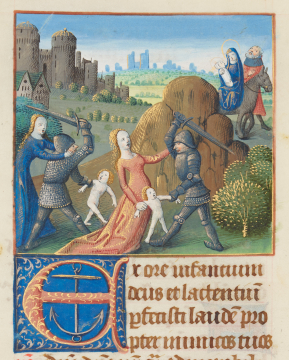 Ex ore infantium
deus et lactentiū
ꝑfecisti laudē pro
pter inimicos tuos